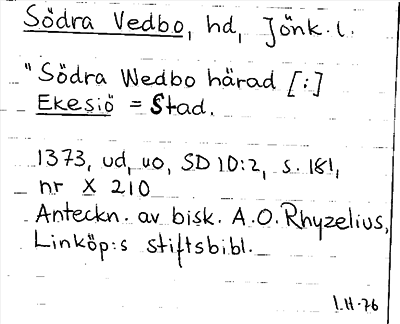 Södra Vedbo, hd, Jönk. l.
"Södra Wedbo härad [:]
Ekesiö = Stad.
1373, ud, uo, SD 10:2, s. 181,
nr X 210
Anteckn. av bisk. A.O. Rhyzelius,
Linköp:s stiftsbibl.
I.H-76